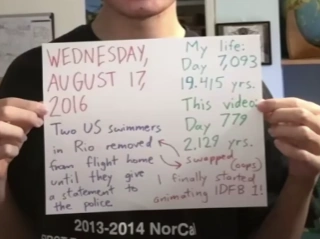 WEDNESDAY,
AUGUST 17,
2016
Two US swimmers
in Rio removed
from flight home
until they give
a statement to
the police
My life:
Day 7,093
19.415 yrs.
This video:
Day 779
2.129 yrs.
swapped (oops)
I finally started
animating IDFB 1!
2013-2014 NorCal